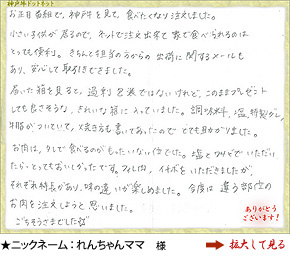 神戸牛ドットネット
お正月番組で、神戸牛を見て、食べたくなり注文しました。
小さい子供が居るので、ネットで注文出来て家で食べられるのは
とっても便利。きちんと担当の方からの出荷に関するメールも
あり、安心して取引できました。
届いた箱を見ると、過剰包装ではないけれど、このままプレゼント
しても良さそうな、きれいな箱に入っていました。調味料、塩、特製ダレ、
牛脂がついていて、焼き方も書いてあったので とても助かりました。
お肉は、タレで食べるのがもったいない位でした。塩とワサビでいただい
たら、とってもおいしかったです。フィレ肉、イチボをいただきましたが、
それぞれ特長があり、味の違いが楽しめました。今度は違う部位の
お肉を注文しようと思いました。
ごちそうさまでした
ありがとう
ございます!
★ニックネーム:れんちゃんママ 様
拡大して見る